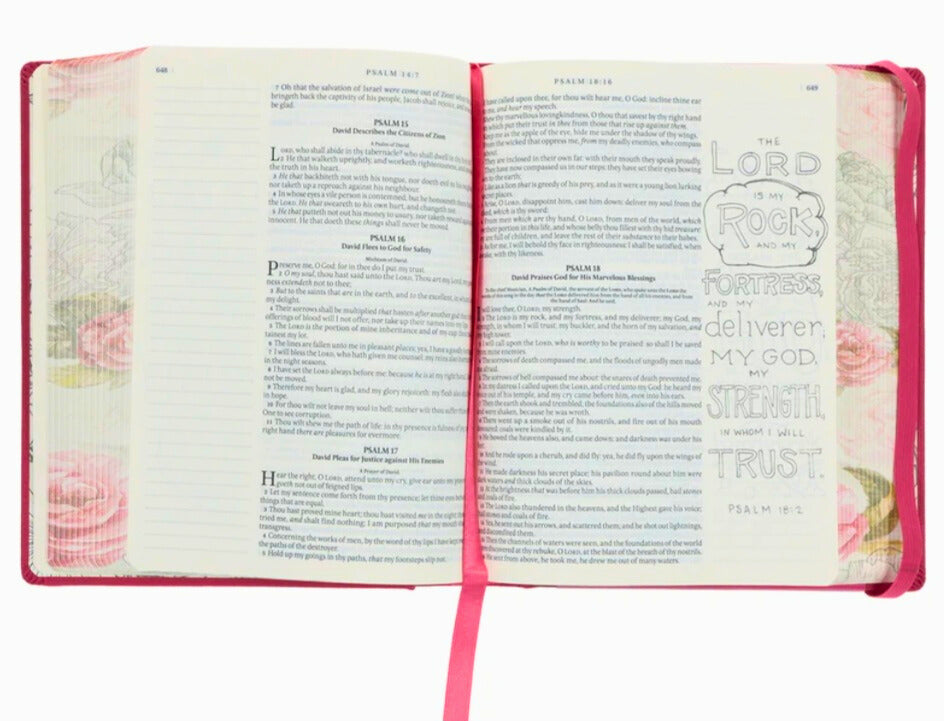 648
PSALM 14:7
7 Oh that the salvation of Israel were come out of Zion! when
bringeth back the captivity of his people, Jacob shall rejoice, and
be glad.
PSALM 15
David Describes the Citizens of Zion
A Psalm of David.
LORD, who shall abide in thy tabernacle? who shall dwell in thy
2 He that walketh uprightly, and worketh righteousness, and
the truth in his heart.
3 He that backbiteth not with his tongue, nor doeth evil to his
nor taketh up a reproach against his neighbour.
4 In whose eyes a vile person is contemned; but he honoureth them
the LORD. He that sweareth to his own hurt, and changeth not.
5 He that putteth not out his money to usury, nor taketh reward
innocent. He that doeth these things shall never be moved.
PSALM 16
David Flees to God for Safety
Michtam of David.
Preserve me, O God: for in thee do I put my trust.
2 O my soul, thou hast said unto the LORD, Thou art my Lord: my
ness extendeth not to thee;
3 But to the saints that are in the earth, and to the excellent, in
my delight.
4 Their sorrows shall be multiplied that hasten after another god:
offerings of blood will I not offer, nor take up their names into my
5 The LORD is the portion of mine inheritance and of my cup:
tainest my lot.
6 The lines are fallen unto me in pleasant places; yea, I have a goodly
7 I will bless the LORD, who hath given me counsel: my reins also
in the night
8 I have set the LORD always before me: because he is at my right hand,
not be moved.
9 Therefore my heart is glad, and my glory rejoiceth: my flesh also
in hope.
10 For thou wilt not leave my soul in hell; neither wilt thou suffer
One to see corruption.
11 Thou wilt shew me the path of life: in thy presence is fulness of
right hand there are pleasures for evermore.
PSALM 17
David Pleas for Justice against His Enemies
A Prayer of David.
Hear the right, O LORD, attend unto my cry, give ear unto my
goeth not out of feigned lips.
2 Let my sentence come forth from thy presence; let thine eyes
things that are equal.
3 Thou hast proved mine heart; thou hast visited me in the night;
tried me, and shalt find nothing; I am purposed that my mouth
transgress.
4 Concerning the works of men, by the word of thy lips I have kept
the paths of the destroyer.
5 Hold up my goings in thy paths, that my footsteps slip not.
PSALM 18:16
649
I have called upon thee, for thou wilt hear me, O God: incline thine ear
me, and hear my speech.
thy marvellous lovingkindness, O thou that savest by thy right hand
which put their trust in thee from those that rise up against them.
Keep me as the apple of the eye, hide me under the shadow of thy wings,
the wicked that oppress me, from my deadly enemies, who compass
about.
They are inclosed in their own fat: with their mouth they speak proudly.
They have now compassed us in our steps: they have set their eyes bowing
to the earth;
Like as a lion that is greedy of his prey, and as it were a young lion lurking
secret places.
Arise, O LORD, disappoint him, cast him down: deliver my soul from the
which is thy sword:
From men which are thy hand, O LORD, from men of the world, which
their portion in this life, and whose belly thou fillest with thy hid treasure:
are full of children, and leave the rest of their substance to their babes.
As for me, I will behold thy face in righteousness: I shall be satisfied, when
with thy likeness.
PSALM 18
David Praises God for His Marvelous Blessings
To the chief Musician, A Psalm of David, the servant of the LORD, who spake unto the LORD the
words of this song in the day that the LORD delivered him from the hand of all his enemies, and from
the hand of Saul: And he said,
I will love thee, O LORD, my strength.
The LORD is my rock, and my fortress, and my deliverer; my God, my
strength, in whom I will trust; my buckler, and the horn of my salvation, and
high tower.
I will call upon the LORD, who is worthy to be praised: so shall I be saved
mine enemies.
The sorrows of death compassed me, and the floods of ungodly men made
afraid.
The sorrows of hell compassed me about: the snares of death prevented me.
In my distress I called upon the LORD, and cried unto my God: he heard
voice out of his temple, and my cry came before him, even into his ears.
Then the earth shook and trembled; the foundations also of the hills moved
and were shaken, because he was wroth.
There went up a smoke out of his nostrils, and fire out of his mouth
coals were kindled by it.
He bowed the heavens also, and came down: and darkness was under his
feet.
And he rode upon a cherub, and did fly: yea, he did fly upon the wings of
the wind.
He made darkness his secret place; his pavilion round about him were
dark waters and thick clouds of the skies.
At the brightness that was before him his thick clouds passed, hail stones
and coals of fire.
The LORD also thundered in the heavens, and the Highest gave his voice;
hail stones and coals of fire.
Yea, he sent out his arrows, and scattered them; and he shot out lightnings,
and discomfited them.
Then the channels of waters were seen, and the foundations of the world
were discovered at thy rebuke, O LORD, at the blast of the breath of thy nostrils.
He sent from above, he took me, he drew me out of many waters.
THE
LORD
IS MY
ROCK,
AND MY
FORTRESS,
AND MY
deliverer;
MY GOD,
MY
STRENGTH,
IN WHOM I WILL
TRUST.
PSALM 18:2